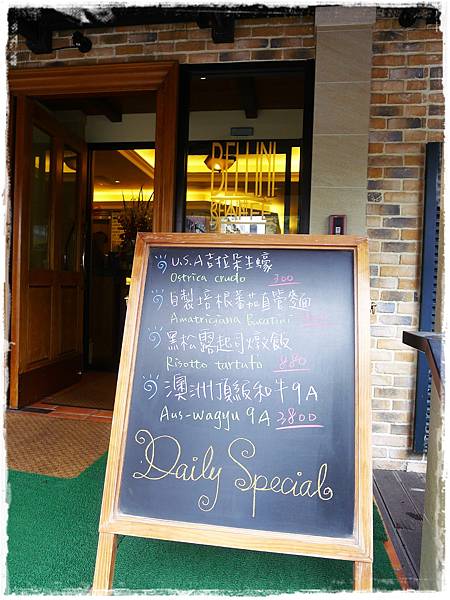 BELLINI
U.S.A 吉拉朵生蠔
Ostrica crudo 300
自製培根蕃茄自管麵
Amatriciana Bucatini
黑松露起司燉飯
Risotto tartufo 880
澳洲頂級和牛9A
Aus-wagyu 9A 3800
Daily Special